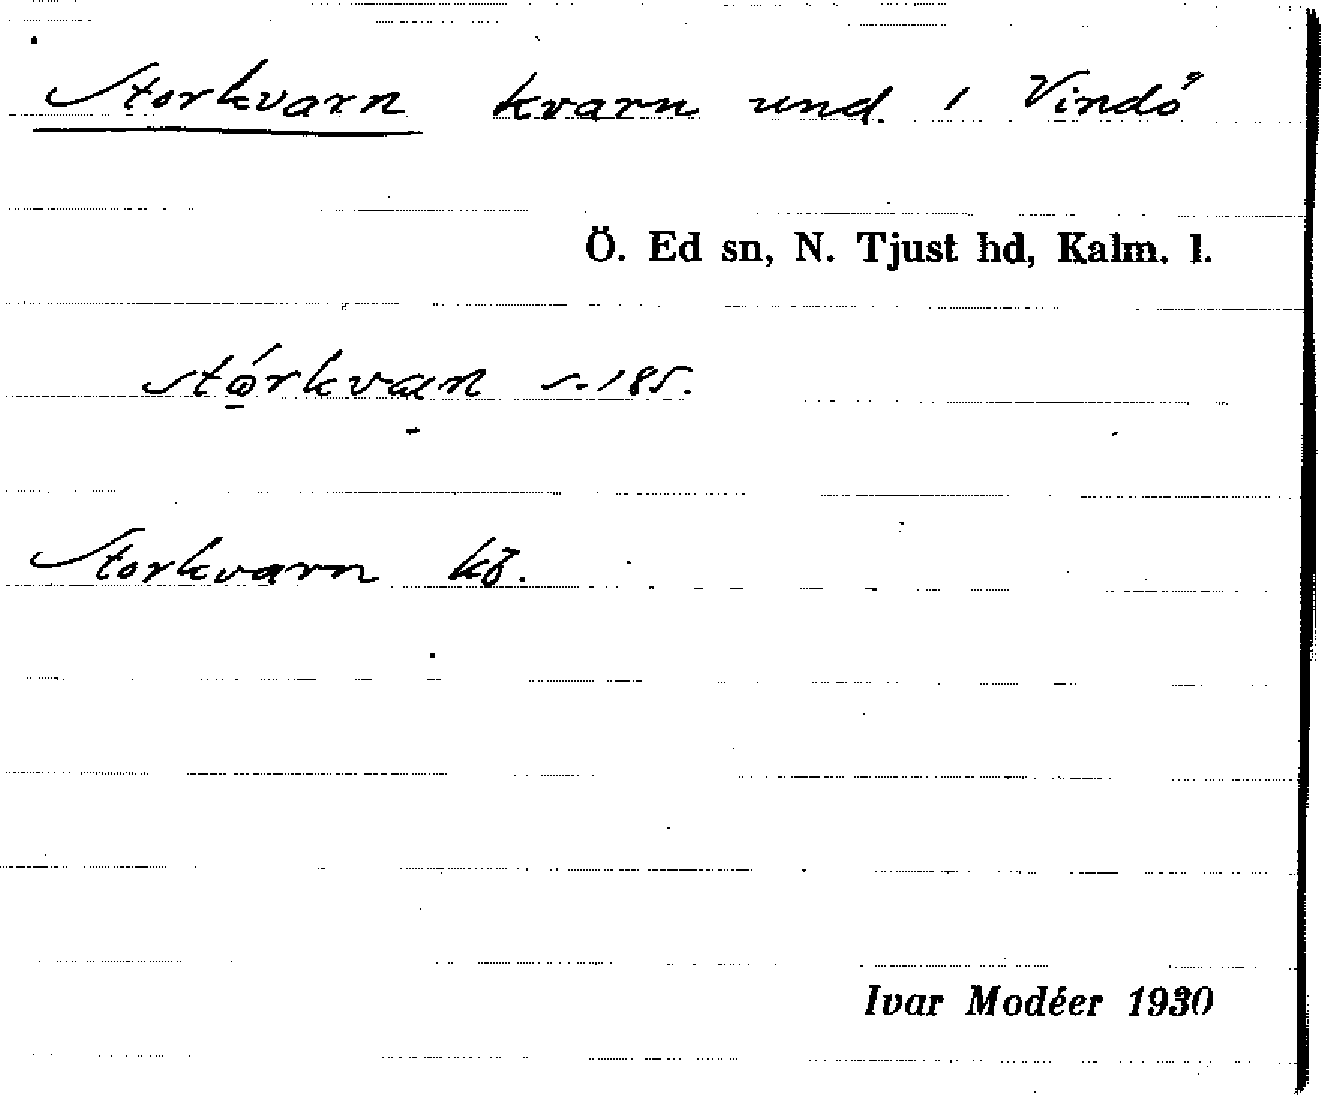 Storkvarn kvarn und. 1 Vindö
Ö. Ed sn, N. Tjust hd, Kalm. l.
stórkvan s. 185.
Storkvarn kb.
Ivar Modéer 1930